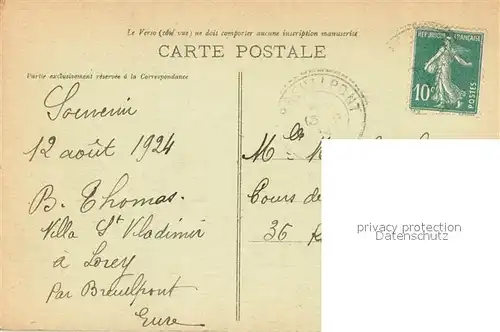 Le Verso (côté vue) ne doit comporter aucune inscription manuscrite
CARTE POSTALE
Partie exclusivement réservée à la Correspondance
REPUBLIQUE FRANÇAISE
10c
POSTES
BREUILPONT
Souvenir
12 août 1924
B. Thomas.
Villa St Vladimir
a Lorey
Par Breuilpont
Eure
Cours de
36
privacy protection
Datenschutz